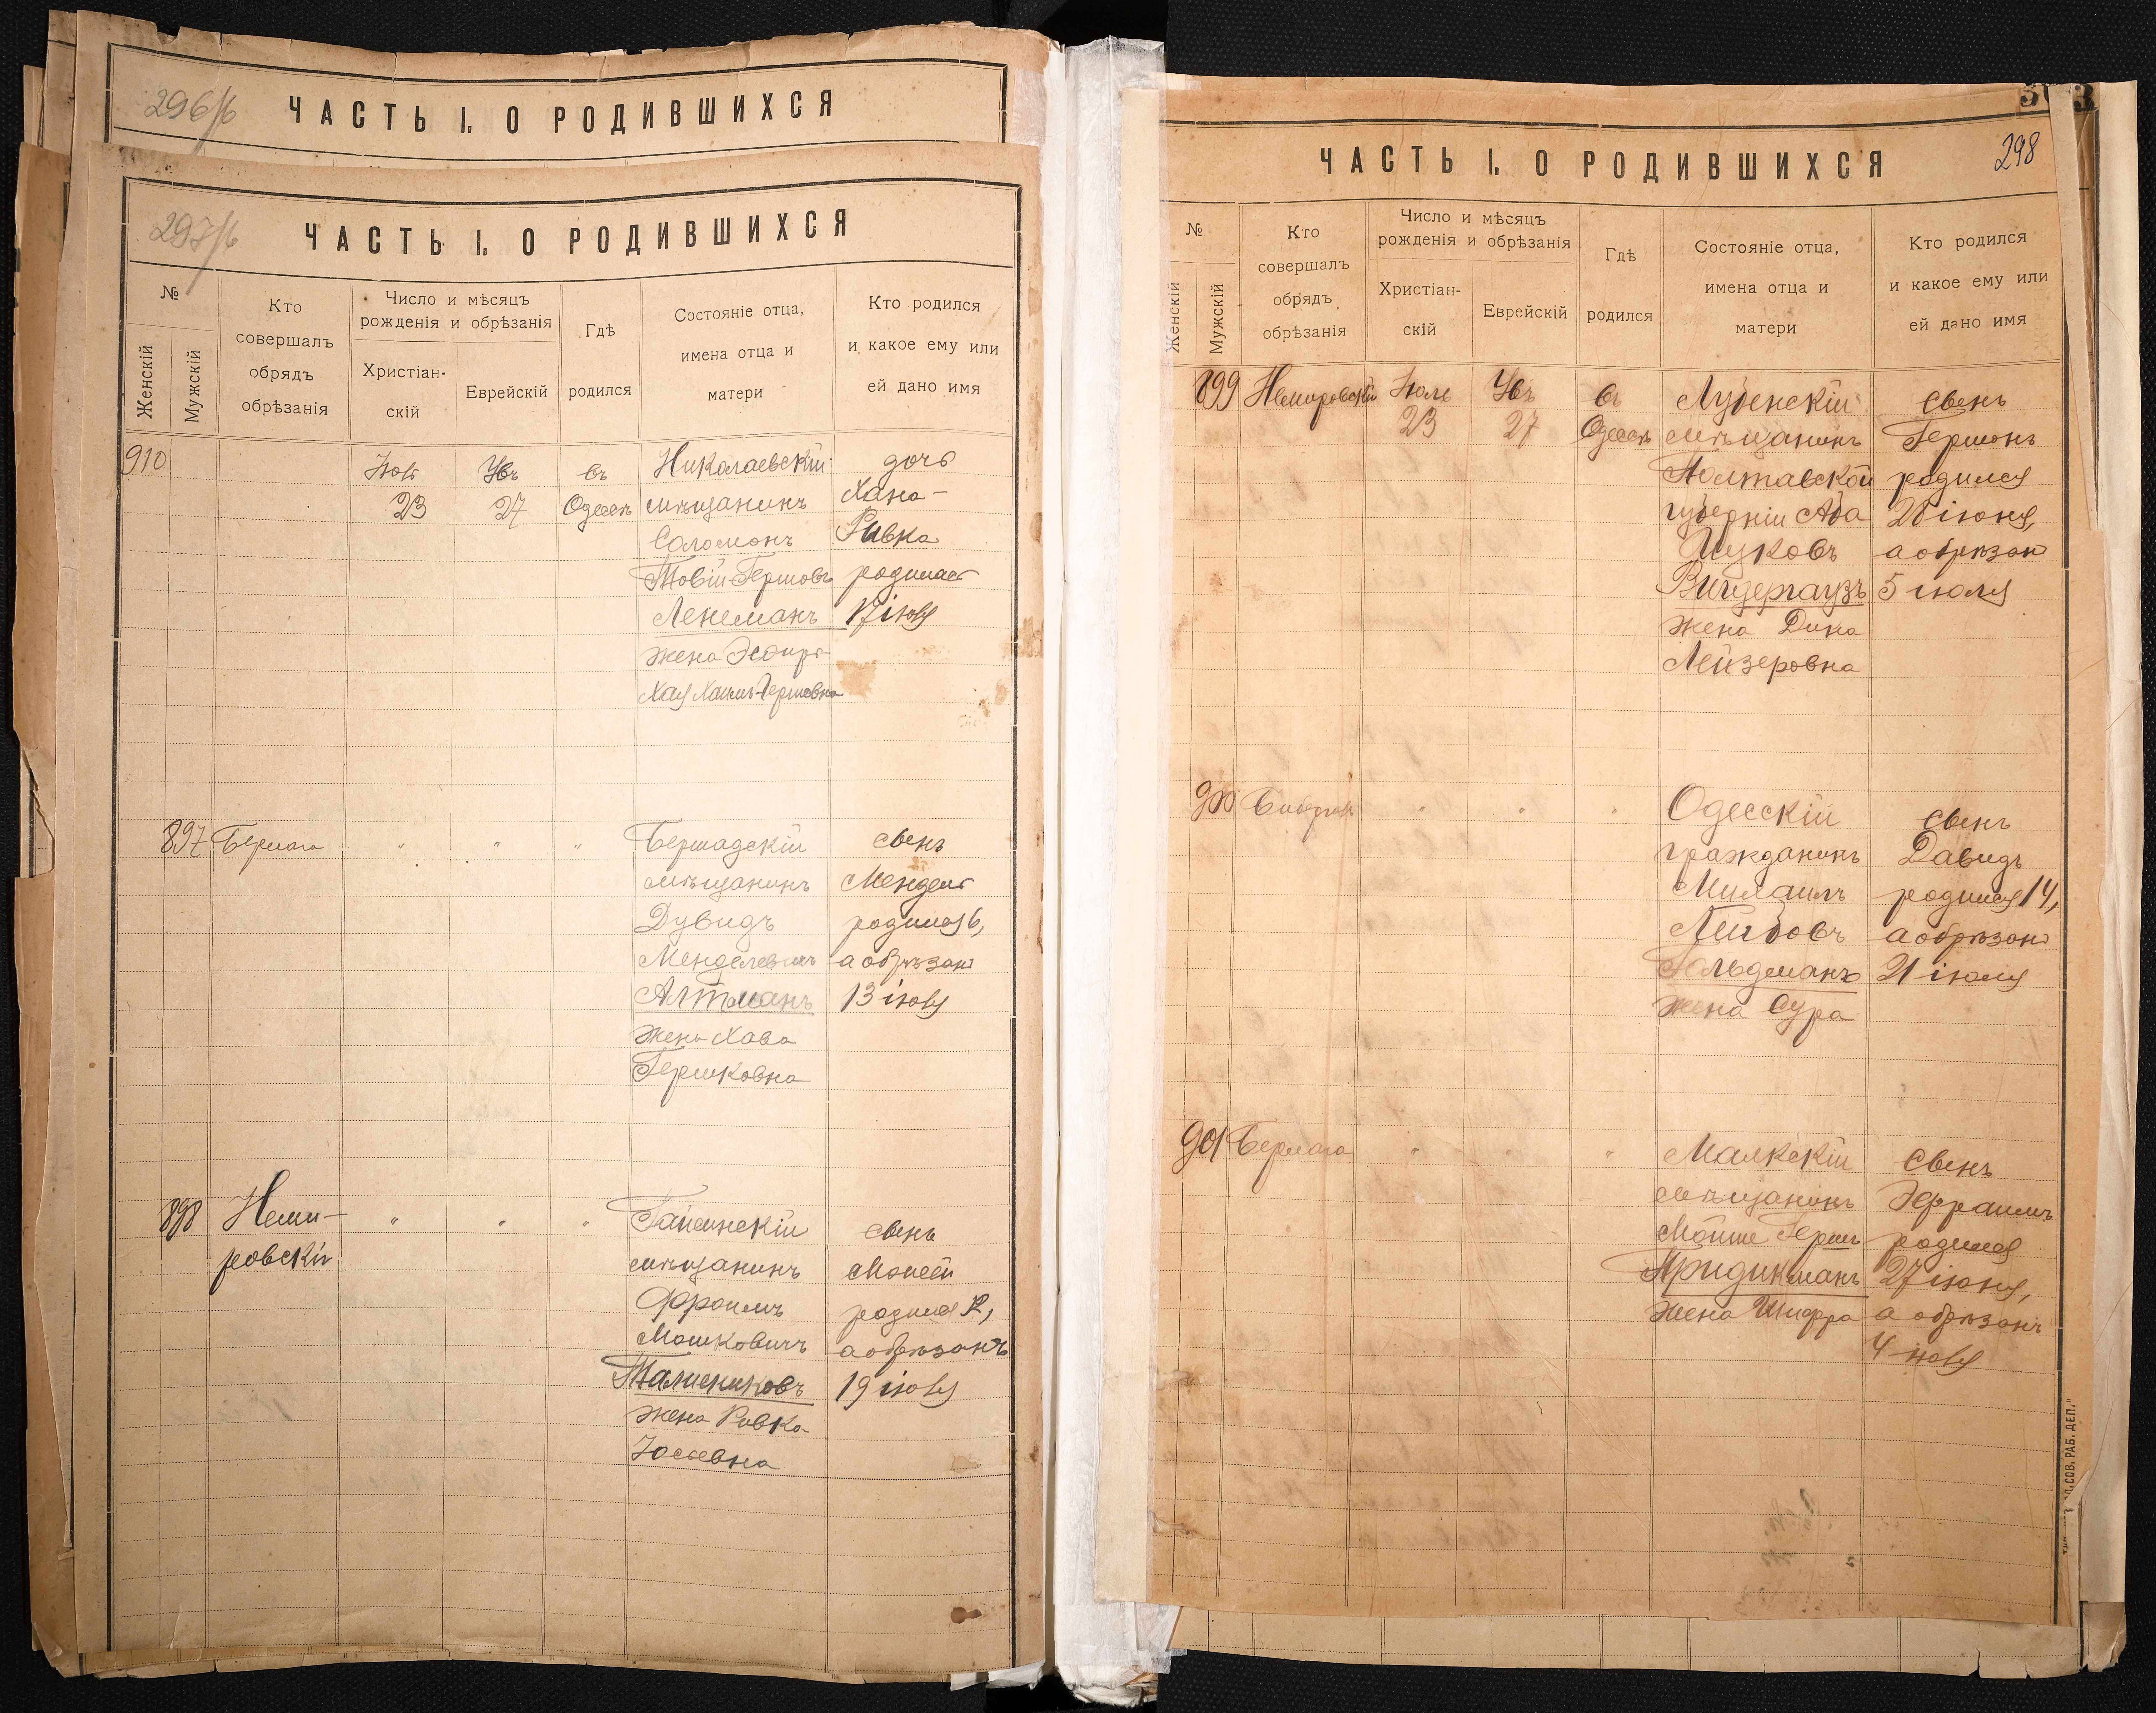 296/б
ЧАСТЬ I. О РОДИВШИХСЯ
297/б
ЧАСТЬ I. О РОДИВШИХСЯ
№
Женскій
Мужскій
Кто
совершалъ
обрядъ
обрѣзанія
Число и мѣсяцъ
рожденія и обрѣзанія
Христіан-
скій
Еврейскій
Гдѣ
родился
Состояніе отца,
имена отца и
матери
Кто родился
и какое ему или
ей дано имя
910
23
27
въ
Одессѣ
Николаевскій
мѣщанинъ
Соломонъ
Товій Гершовъ
жена Эсфира
Хая Хаимъ-Гершовна
дочь
Хана-
Ривка
родилась
17
897
Берлага
"
"
"
Бершадскій
мѣщанинъ
Дувидъ
Менделевичъ
Алтманъ
жена Хава
Гершковна
сынъ
Мендель
родился 6,
а обрѣзанъ
13 іюля
898
Неми-
ровскій
"
"
"
Гайсинскій
мѣщанинъ
Фроимъ
Мошковичъ
жена Ривка
Іосевна
сынъ
Моисей
родился 12,
а обрѣзанъ
19 іюля
298
ЧАСТЬ I. О РОДИВШИХСЯ
№
Женскій
Мужскій
Кто
совершалъ
обрядъ
обрѣзанія
Число и мѣсяцъ
рожденія и обрѣзанія
Христіан-
скій
Еврейскій
Гдѣ
родился
Состояніе отца,
имена отца и
матери
Кто родился
и какое ему или
ей дано имя
899
Немировскій
Іюль
23
27
въ
Одессѣ
Лубенскій
мѣщанинъ
Полтавской
губерніи Аба
жена Дика
Лейзеровна
сынъ
Гершонъ
родился
28 іюня,
а обрѣзанъ
5 іюля
900
"
"
"
Одесскій
гражданинъ
Михаилъ
Лейбовъ
Гольдманъ
жена Сура
сынъ
Давидъ
родился 14,
а обрѣзанъ
21 іюля
901
Берлага
"
"
"
мѣщанинъ
Мойше Гершъ
Фридикманъ
жена Шифра
сынъ
Эфраимъ
родился
27 іюня,
а обрѣзанъ
4 іюля
СОВ. РАБ. ДЕП."